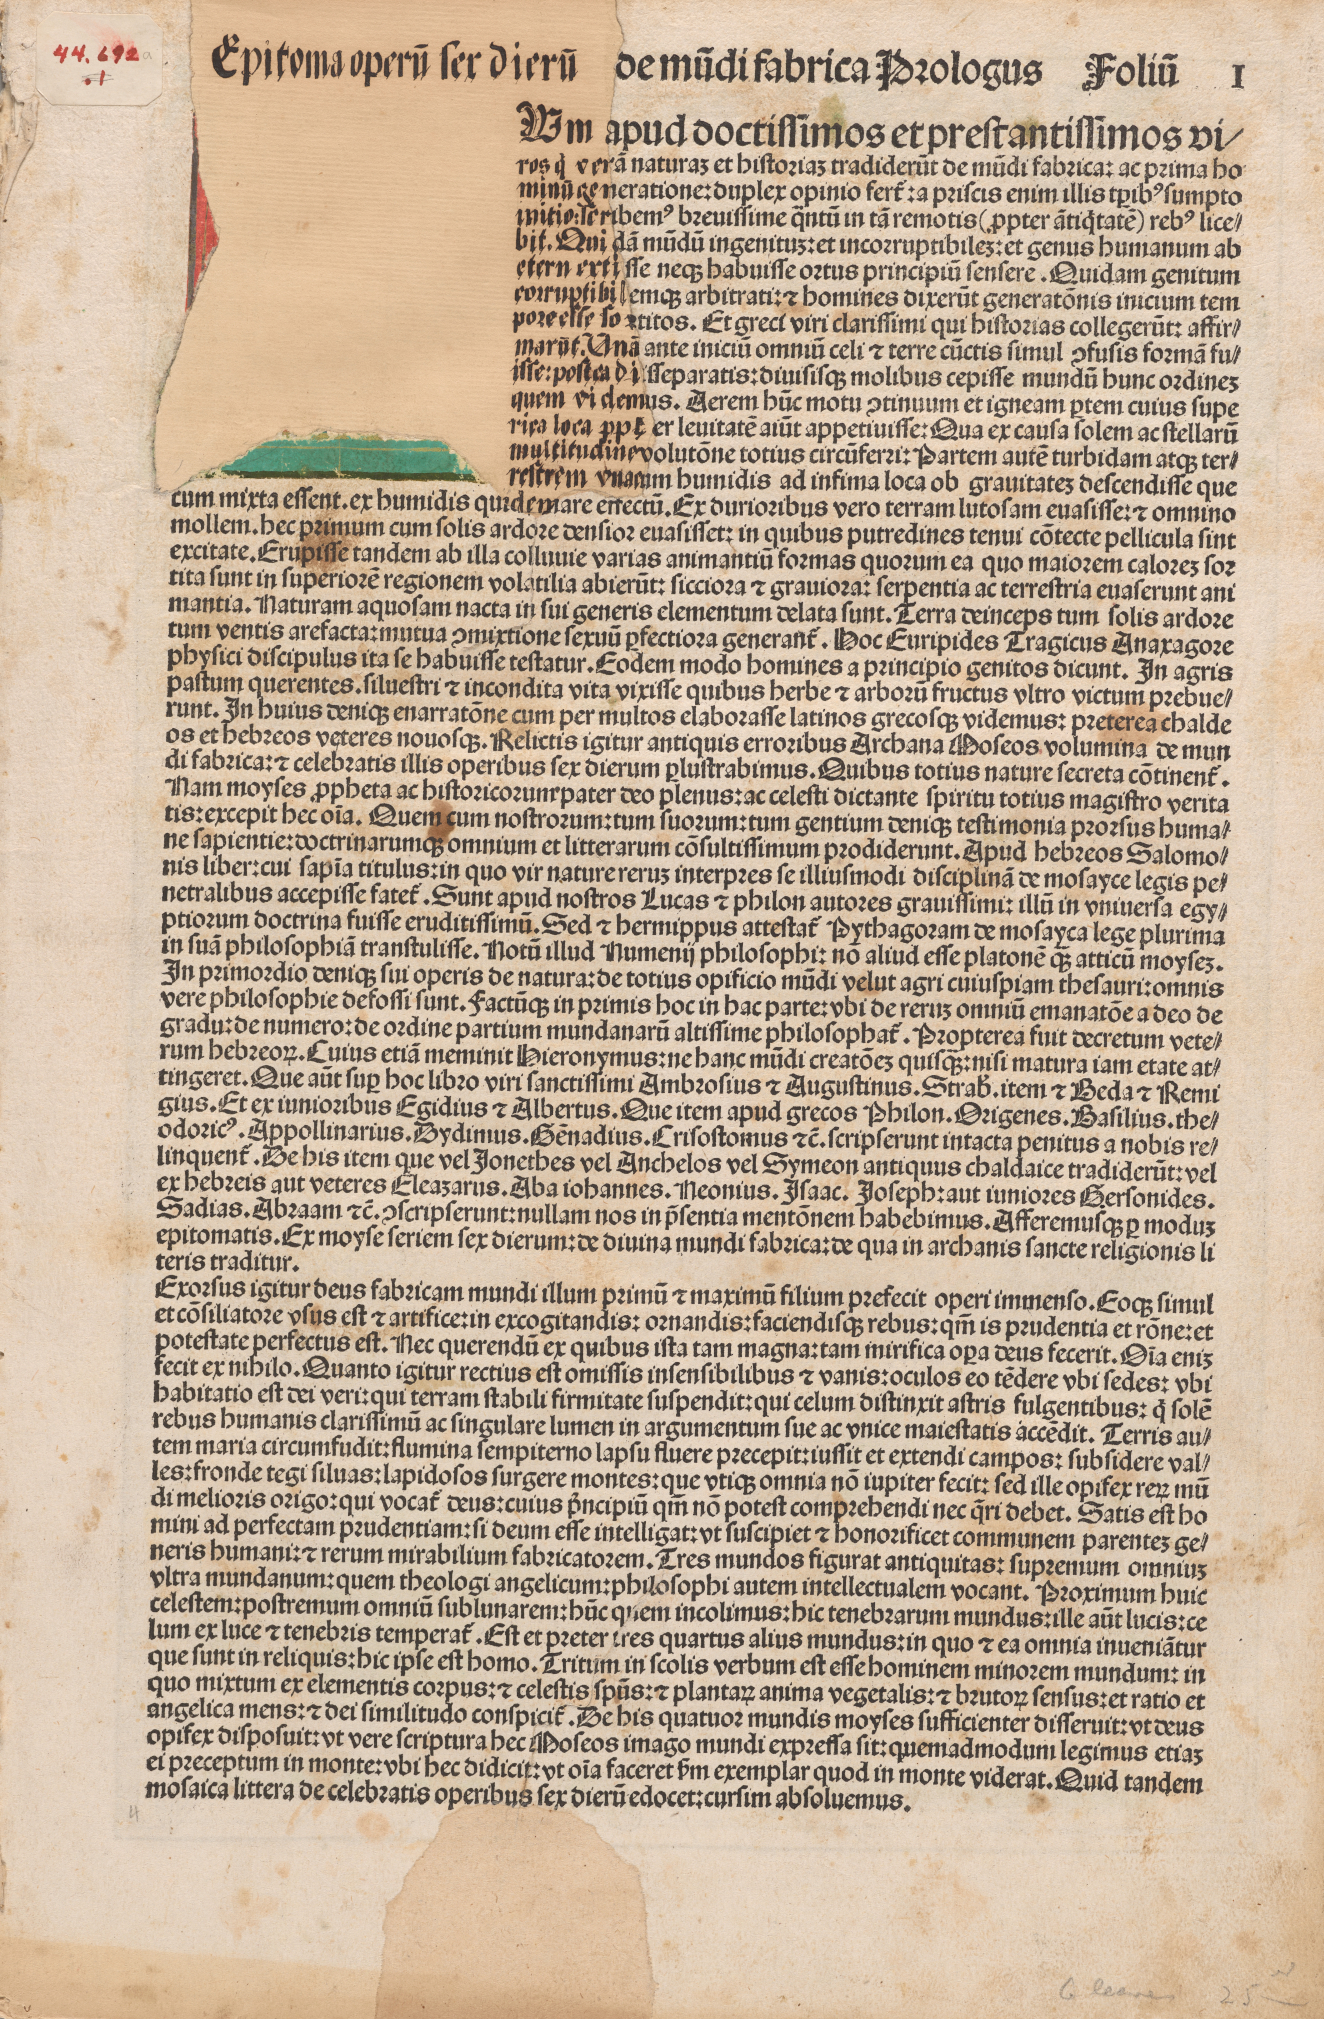 44.692a
.1
Epitoma operū sex dierū de mūdi fabrica Prologus Foliū I
Wm apud doctissimos et prestantissimos vi⸗
ros q̇ verā naturaꝫ et historiaꝫ tradiderūt de mūdi fabrica: ac prima ho
minū generatione: duplex opinio fert᷑: a priscis enim illis tꝑibꝰ sumpto
initio: scribemꝰ breuissime q̄ntū in tā remotis (ꝓpter āticq̇tatē) rebꝰ lice⸗
bit. Quidā mūdū ingenituꝫ: et incorruptibileꝫ: et genus humanum ab
etern extisse neqꝫ habuisse ortus principiū sensere. Quidam genitum
corruptibilemqꝫ arbitrati: ⁊ homines dixerūt generatōnis inicium tem
pore esse sortitos. Et greci viri clarissimi qui historias collegerūt: affir⸗
marūt. Vnā ante iniciū omniū celi ⁊ terre cūctis simul ꝯfusis formā fu⸗
isse: postea disseparatis: diuisisqꝫ molibus cepisse mundū hunc ordineꝫ
quem videmus. Aerem hūc motu ꝯtinuum et igneam ꝑtem cuius supe
riora loca ꝓpter leuitatē aiūt appetiuisse: Qua ex causa solem ac stellarū
multitudinē volutōne totius circūferri: Partem autē turbidam atqꝫ ter⸗
restrem vnacum humidis ad infima loca ob grauitateꝫ descendisse que
cum mixta essent. ex humidis quidem mare effectū. Ex durioribus vero terram lutosam euasisse: ⁊ omnino
mollem. hec primum cum solis ardore densior euasisset: in quibus putredines tenui cōtecte pellicula sint
excitate. Erupisse tandem ab illa colluuie varias animantiū formas quorum ea quo maiorem caloreꝫ sor
tita sunt in superiorē regionem volatilia abierūt: sicciora ⁊ grauiora: serpentia ac terrestria euaserunt ani
mantia. Naturam aquosam nacta in sui generis elementum delata sunt. Terra deinceps tum solis ardore
tum ventis arefacta: mutua ꝯmixtione sexuū ꝑfectiora generant᷑. Hoc Euripides Tragicus Anaxagore
physici discipulus ita se habuisse testatur. Eodem modo homines a principio genitos dicunt. In agris
pastum querentes. siluestri ⁊ incondita vita vixisse quibus herbe ⁊ arborū fructus vltro victum prebue⸗
runt. In huius deniqꝫ enarratōne cum per multos elaborasse latinos grecosqꝫ videmus: preterea chalde
os et hebreos veteres nouosqꝫ. Relictis igitur antiquis erroribus Archana Moseos volumina de mun
di fabrica: ⁊ celebratis illis operibus sex dierum ꝑlustrabimus. Quibus totius nature secreta cōtinent᷑.
Nam moyses ꝓpheta ac historicorum pater deo plenus: ac celesti dictante spiritu totius magistro verita
tis: excepit hec oīa. Quem cum nostrorum: tum suorum: tum gentium deniqꝫ testimonia prorsus huma⸗
ne sapientie: doctrinarumqꝫ omnium et litterarum cōsultissimum prodiderunt. Apud hebreos Salomo⸗
nis liber: cui sapīa titulus: in quo vir nature reruꝫ interpres se illiusmodi disciplinā de mosayce legis pe⸗
netralibus accepisse fatet᷑. Sunt apud nostros Lucas ⁊ philon autores grauissimi: illū in vniuersa egy⸗
ptiorum doctrina fuisse eruditissimū. Sed ⁊ hermippus attestat᷑ Pythagoram de mosayca lege plurima
in suā philosophiā transtulisse. Notū illud Numenij philosophi: nō aliud esse platonē qꝫ̄ atticū moyseꝫ.
In primordio deniqꝫ sui operis de natura: de totius opificio mūdi velut agri cuiuspiam thesauri: omnis
vere philosophie defossi sunt. Factūqꝫ in primis hoc in hac parte: vbi de reruꝫ omniū emanatōe a deo de
gradu: de numero: de ordine partium mundanarū altissime philosophat᷑. Propterea fuit decretum vete⸗
rum hebreoꝝ. Cuius etiā meminit Hieronymus: ne hanc mūdi creatōeꝫ quisqꝫ: nisi matura iam etate at⸗
tingeret. Que aūt suꝑ hoc libro viri sanctissimi Ambrosius ⁊ Augustinus. Strab̄. item ⁊ Beda ⁊ Remi
gius. Et ex iunioribus Egidius ⁊ Albertus. Que item apud grecos Philon. Origenes. Basilius. the⸗
odoricꝰ. Appollinarius. Dydimus. Gēnadius. Crisostomus ⁊c̄. scripserunt intacta penitus a nobis re⸗
linquent᷑. De his item que vel Jonethes vel Anchelos vel Symeon antiquus chaldaice tradiderūt: vel
ex hebreis aut veteres Eleazarus. Aba iohannes. Neonius. Isaac. Joseph: aut iuniores Gersonides.
Sadias. Abraam ⁊c̄. ꝯscripserunt: nullam nos in p̄sentia mentōnem habebimus. Afferemusqꝫ ꝑ moduꝫ
epitomatis. Ex moyse seriem sex dierum: de diuina mundi fabrica: de qua in archanis sancte religionis li
teris traditur.
Exorsus igitur deus fabricam mundi illum primū ⁊ maximū filium prefecit operi immenso. Eoqꝫ simul
et cōsiliatore vsus est ⁊ artifice: in excogitandis: ornandis: faciendisqꝫ rebus: qm̄ is prudentia et rōne: et
potestate perfectus est. Nec querendū ex quibus ista tam magna: tam mirifica oꝑa deus fecerit. Oīa eniꝫ
fecit ex nihilo. Quanto igitur rectius est omissis insensibilibus ⁊ vanis: oculos eo tēdere vbi sedes: vbi
habitatio est dei veri: qui terram stabili firmitate suspendit: qui celum distinxit astris fulgentibus: q̇ solē
rebus humanis clarissimū ac singulare lumen in argumentum sue ac vnice maiestatis accēdit. Terris au⸗
tem maria circumfudit: flumina sempiterno lapsu fluere precepit: iussit et extendi campos: subsidere val⸗
les: fronde tegi siluas: lapidosos surgere montes: que vtiqꝫ omnia nō iupiter fecit: sed ille opifex reꝝ mū
di melioris origo: qui vocat᷑ deus: cuius pn̄cipiū qm̄ nō potest comprehendi nec q̄ri debet. Satis est ho
mini ad perfectam prudentiam: si deum esse intelligat: vt suscipiet ⁊ honorificet communem parenteꝫ ge⸗
neris humani: ⁊ rerum mirabilium fabricatorem. Tres mundos figurat antiquitas: supremum omniuꝫ
vltra mundanum: quem theologi angelicum: philosophi autem intellectualem vocant. Proximum huic
celestem: postremum omniū sublunarem: hūc quem incolimus: hic tenebrarum mundus: ille aūt lucis: ce
lum ex luce ⁊ tenebris temperat᷑. Est et preter tres quartus alius mundus: in quo ⁊ ea omnia inueniātur
que sunt in reliquis: hic ipse est homo. Tritum in scolis verbum est esse hominem minorem mundum: in
quo mixtum ex elementis corpus: ⁊ celestis spūs: ⁊ plantaꝝ anima vegetalis: ⁊ brutoꝝ sensus: et ratio et
angelica mens: ⁊ dei similitudo conspicit᷑. De his quatuor mundis moyses sufficienter disseruit: vt deus
opifex disposuit: vt vere scriptura hec Moseos imago mundi expressa sit: quemadmodum legimus etiaꝫ
ei preceptum in monte: vbi hec didicit: vt oīa faceret ẜm exemplar quod in monte viderat. Quid tandem
mosaica littera de celebratis operibus sex dierū edocet: cursim absoluemus.
6 leaves 25